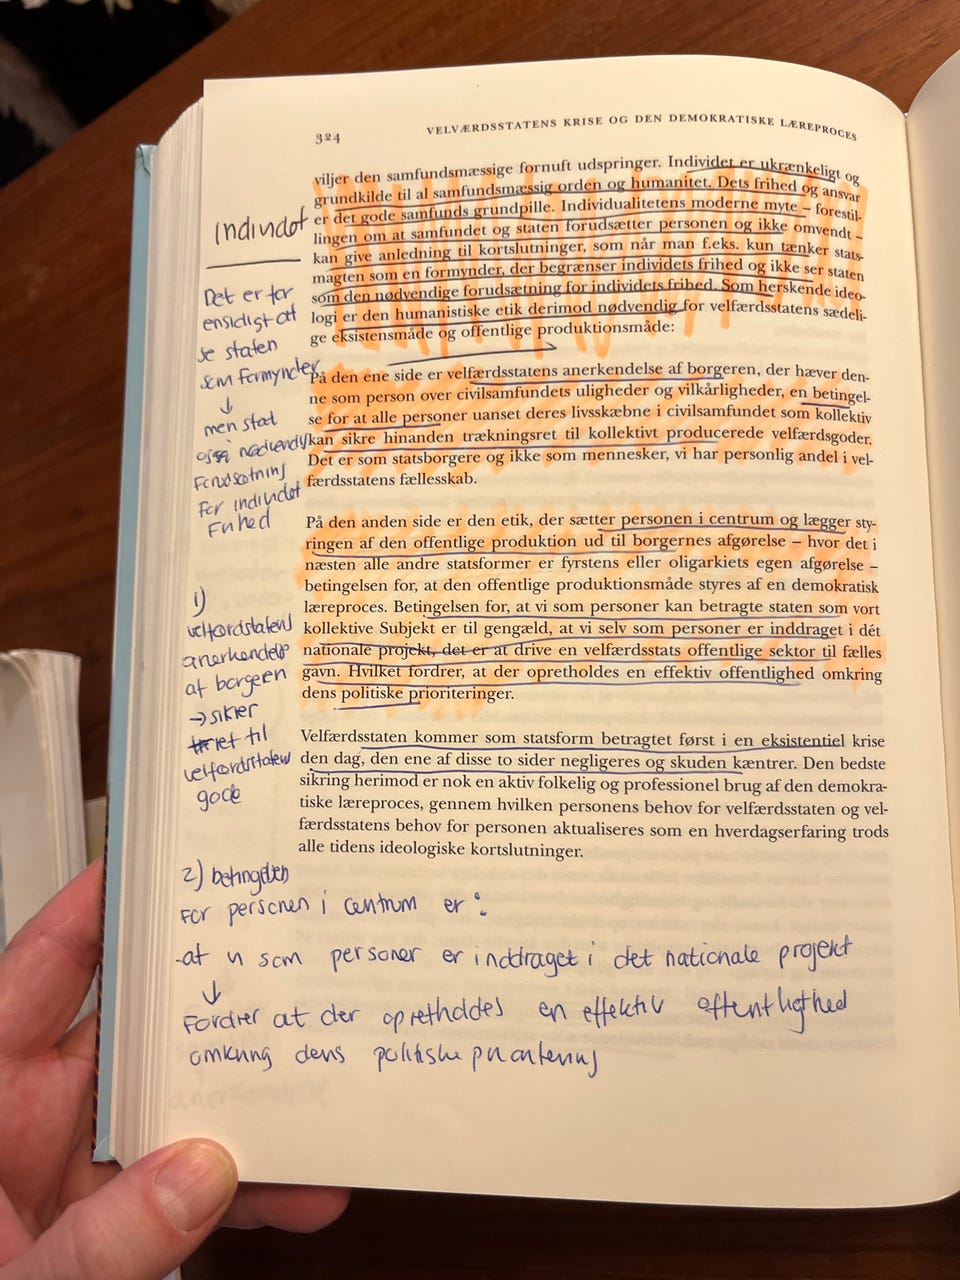 324
VELVÆRDSSTATENS KRISE OG DEN DEMOKRATISKE LÆREPROCES
viljer den samfundsmæssige fornuft udspringer. Individet er ukrænkeligt og
grundkilde til al samfundsmæssig orden og humanitet. Dets frihed og ansvar
er det gode samfunds grundpille. Individualitetens moderne myte – forestil-
lingen om at samfundet og staten forudsætter personen og ikke omvendt –
kan give anledning til kortslutninger, som når man f.eks. kun tænker stats-
magten som en formynder, der begrænser individets frihed og ikke ser staten
som den nødvendige forudsætning for individets frihed. Som herskende ideo-
logi er den humanistiske etik derimod nødvendig for velfærdsstatens sædeli-
ge eksistensmåde og offentlige produktionsmåde:
På den ene side er velfærdsstatens anerkendelse af borgeren, der hæver den-
ne som person over civilsamfundets uligheder og vilkårligheder, en betingel-
se for at alle personer uanset deres livsskæbne i civilsamfundet som kollektiv
kan sikre hinanden trækningsret til kollektivt producerede velfærdsgoder.
Det er som statsborgere og ikke som mennesker, vi har personlig andel i vel-
færdsstatens fællesskab.
På den anden side er den etik, der sætter personen i centrum og lægger sty-
ringen af den offentlige produktion ud til borgernes afgørelse – hvor det i
næsten alle andre statsformer er fyrstens eller oligarkiets egen afgørelse –
betingelsen for, at den offentlige produktionsmåde styres af en demokratisk
læreproces. Betingelsen for, at vi som personer kan betragte staten som vort
kollektive Subjekt er til gengæld, at vi selv som personer er inddraget i dét
nationale projekt, det er at drive en velfærdsstats offentlige sektor til fælles
gavn. Hvilket fordrer, at der opretholdes en effektiv offentlighed omkring
dens politiske prioriteringer.
Velfærdsstaten kommer som statsform betragtet først i en eksistentiel krise
den dag, den ene af disse to sider negligeres og skuden kæntrer. Den bedste
sikring herimod er nok en aktiv folkelig og professionel brug af den demokra-
tiske læreproces, gennem hvilken personens behov for velfærdsstaten og vel-
færdsstatens behov for personen aktualiseres som en hverdagserfaring trods
alle tidens ideologiske kortslutninger.
Individet
Det er for
ensidigt at
se staten
som formynder
↓
men stat
også nødvendig
forudsætning
for individet
frihed
1)
velfærdsstatens
anerkendelse
af borgeren
→ sikrer
ret til
velfærdsstatens
gode
2) betingelsen
for personen i centrum er:
-at vi som personer er inddraget i det nationale projekt
↓
Fordrer at der opretholdes en effektiv offentlighed
omkring dens politiske prioritering